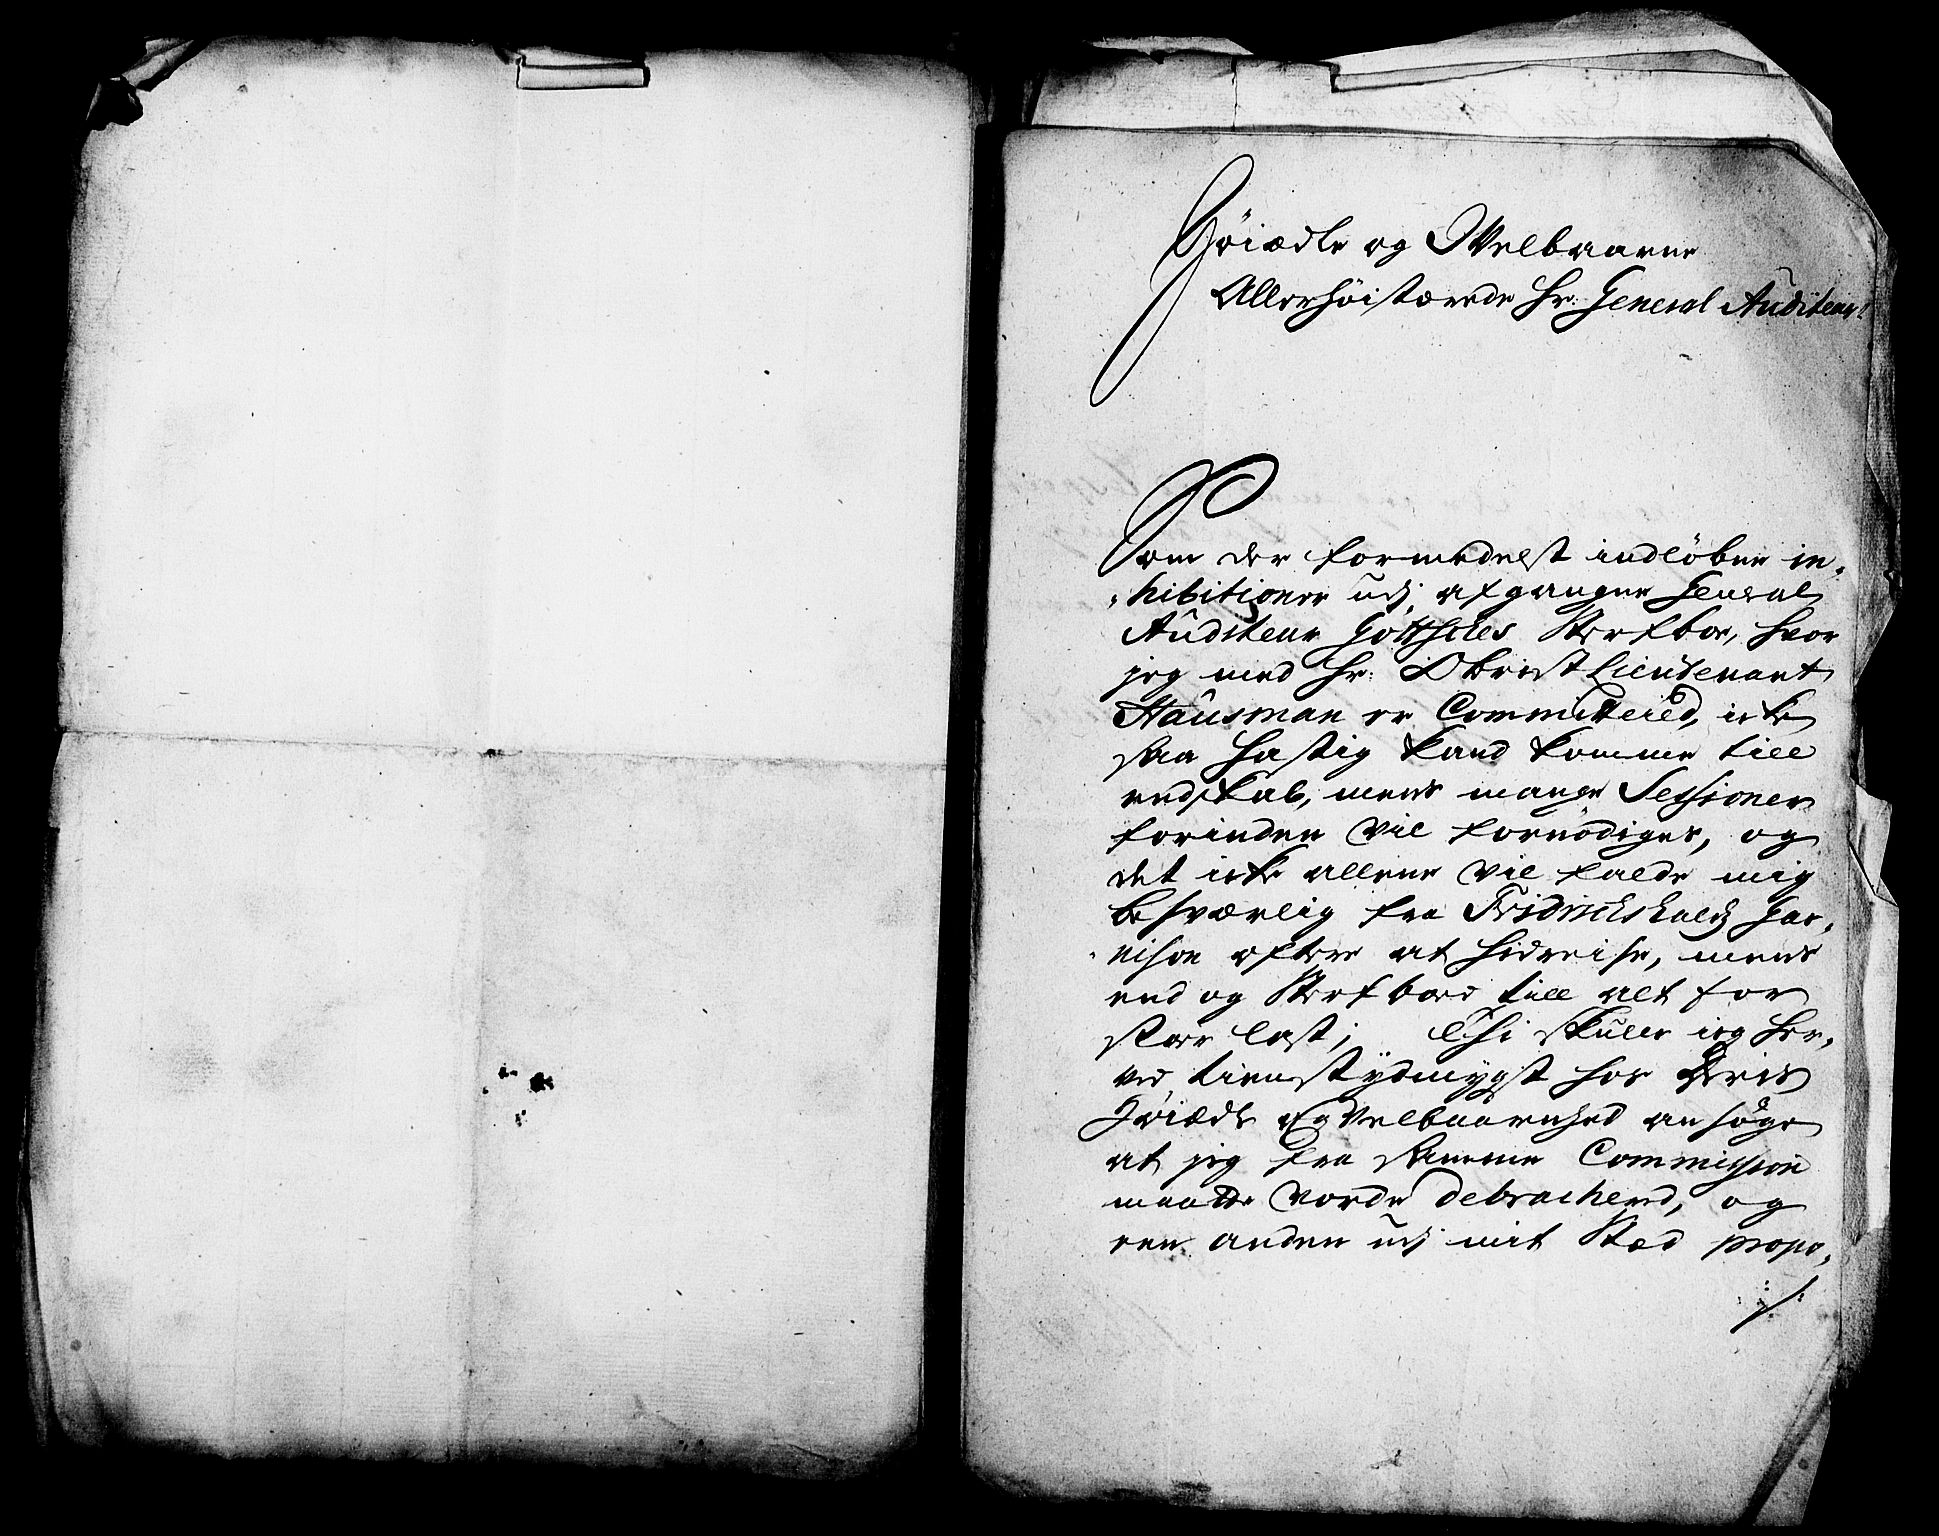 Høiædle og Welbaarne
Allerhøistærede Hr: General Auditeur
Som der formedelst indløbne in-
hibitioner udj afgangne General
Auditeur Gottsches Sterfboe, hvor
jeg med Hr: Obrist Lieutenant
Hausman er Committered, icke
saa hastig kand komme till
endskab, mens mange Sessioner
forinden vil fornødiges, og
det icke allene vil falde mig
besværlig fra Fridrichshalds Gar-
nison oftere at hidreise, mens
end og Sterfboed till alt for
stoer last; Thi skulle jeg her-
ved tienstydmygst hos Deris
Høiædle og Velbaarenhed ansøge
at jeg fra samme Commission
maatte vorde debracherd, og
een anden udj mit Stæd propo-